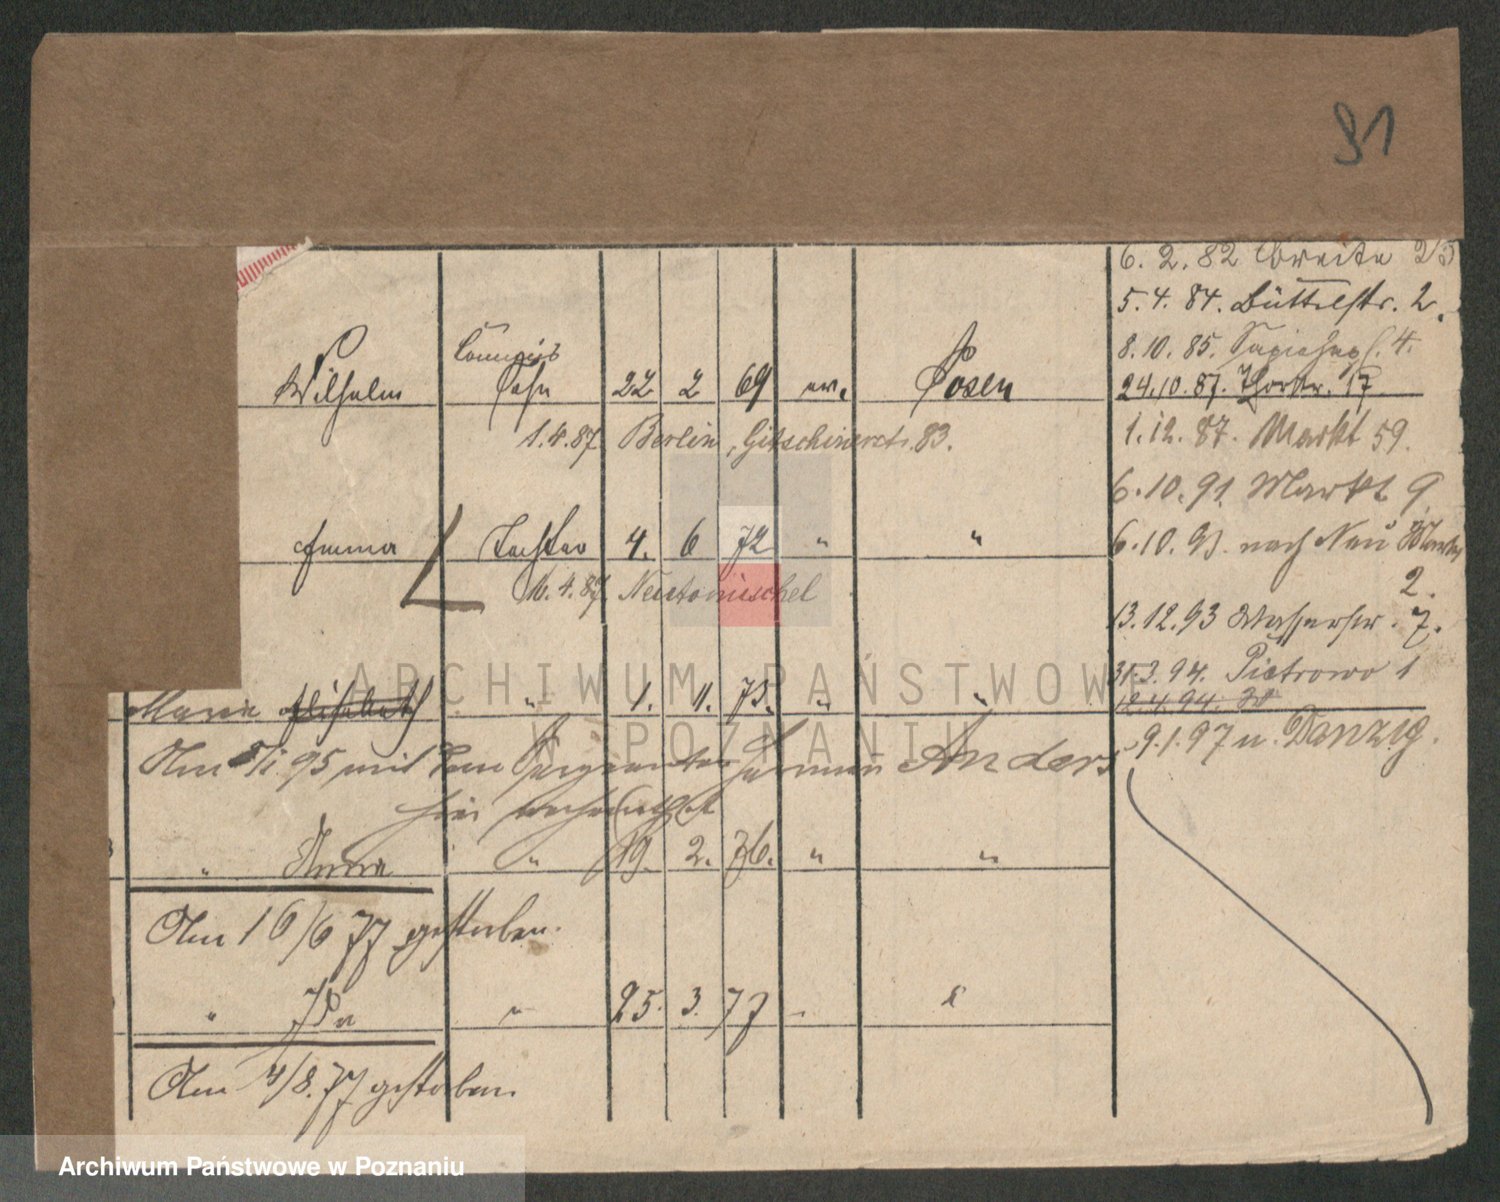 91
6. 2. 82 Breite 25
5. 4. 84. Büttelstr. 2.
8. 10. 85. 4.
Commis
Wilhelm Sohn 22 2 69 ev. Posen
24. 10. 87. Thorstr. 17
1. 4. 87. Berlin, Gitschinerstr. 83.
1. 12. 87. Markt 59.
6. 10. 91. Markt 9
Emma Tochter 4. 6 72 " "
6. 10. 93. nach Neu
2.
16. 4. 87 Neutomischel
13. 12. 93 Wasserstr. 7.
31. 3. 94. Pietrowo 1
Marie Elisabeth " 1. 11. 73. " "
12. 4. 94.
9. 1. 97 n. Danzig.
Am 5/1. 95 mit dem Sergeanten Herman Anders
hier verheirathet
" Anna " 19. 2. 76. " "
Am 16/6 77 gestorben.
" Ida " 25. 3. 77 "
Am 4/8. 77 gestorben.
ARCHIWUM PAŃSTWOWE
W POZNANIU
Archiwum Państwowe w Poznaniu